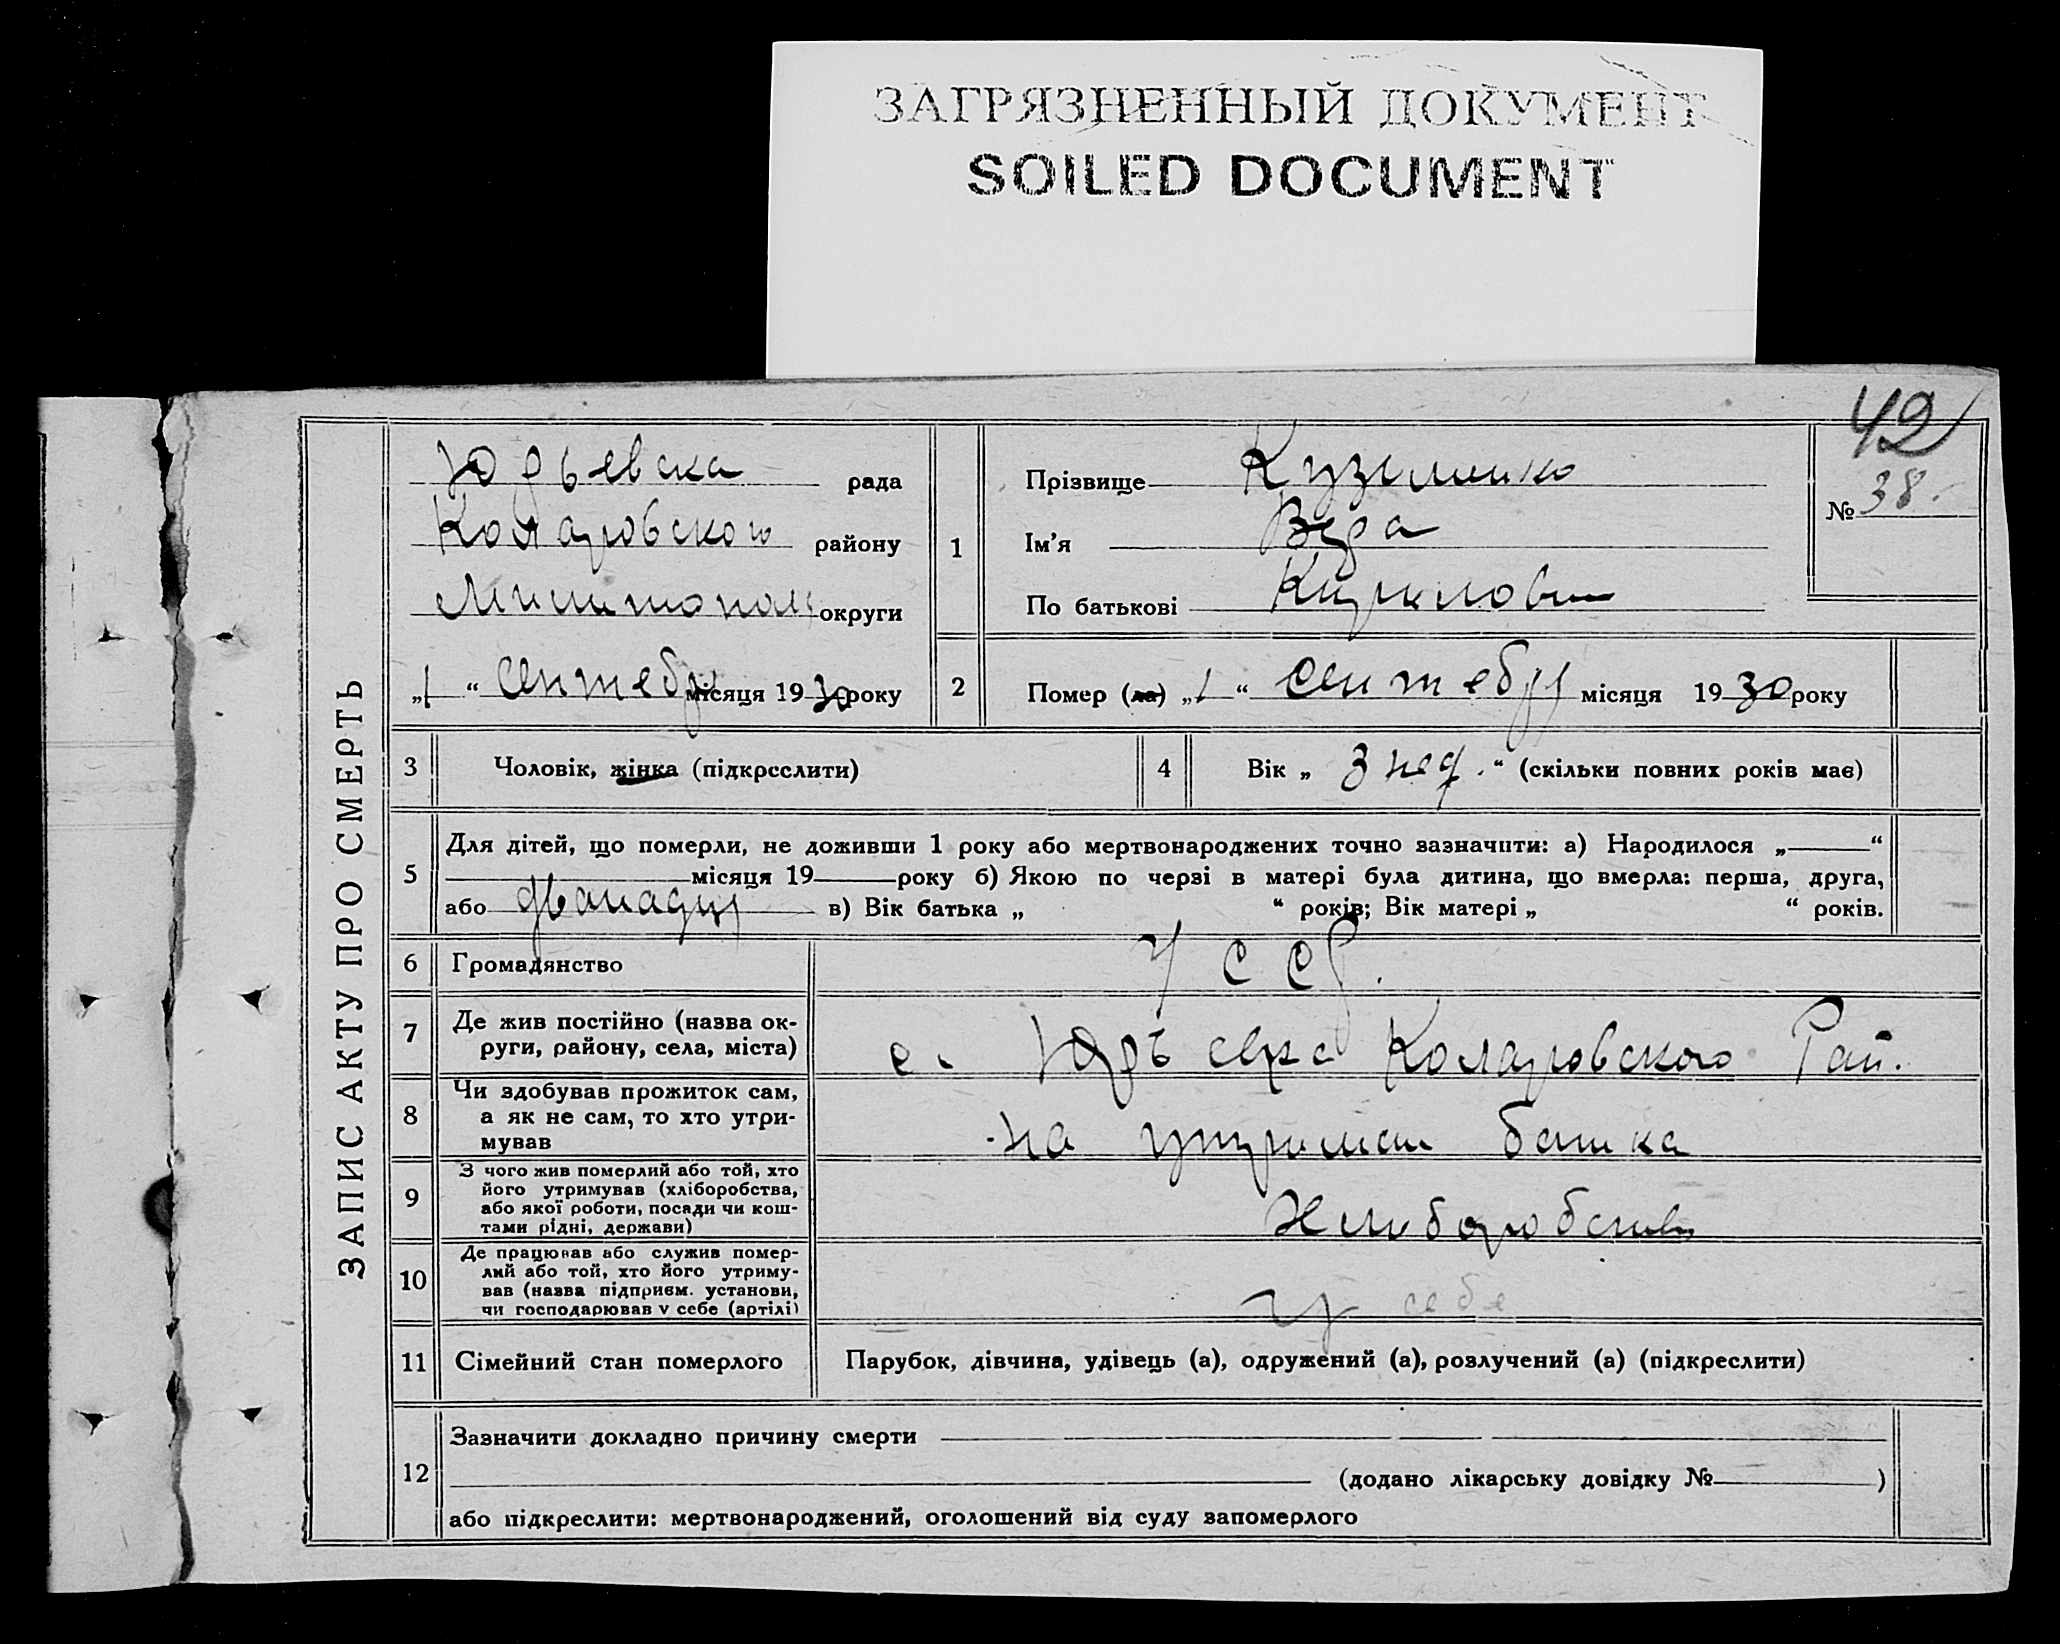 ЗАГРЯЗНЕННЫЙ ДОКУМЕНТ
SOILED DOCUMENT
42
ЗАПИС АКТУ ПРО СМЕРТЬ
Юрьевска рада
Коларовского району
округи
„1“ Сентебря місяця 1930 року
1
Прізвище Кузьменко
Ім'я Вера
По батькові
№ 38
2
Помер (ла) „1“ Сентебря місяця 1930 року
3 Чоловік, жінка (підкреслити)
4 Вік „3 нед.“ (скільки повних років має)
5 Для дітей, що померли, не доживши 1 року або мертвонароджених точно зазначити: а) Народилося „ “
місяця 19 року б) Якою по черзі в матері була дитина, що вмерла: перша, друга,
або в) Вік батька „ “ років; Вік матері „ “ років.
6 Громадянство УССР.
7 Де жив постійно (назва ок-
руги, району, села, міста)
с. Коларовского Рай.
8 Чи здобував прожиток сам,
а як не сам, то хто утри-
мував
на утриман батька
9 З чого жив померлий або той, хто
його утримував (хліборобства,
або якої роботи, посади чи кош-
тами рідні, держави)
Хлиборобство
10 Де працював або служив помер-
лий або той, хто його утриму-
вав (назва підприєм. установи,
чи господарював у себе (артілі)
у себе
11 Сімейний стан померлого Парубок, дівчина, удівець (а), одружений (а), розлучений (а) (підкреслити)
12 Зазначити докладно причину смерти
(додано лікарську довідку № )
або підкреслити: мертвонароджений, оголошений від суду запомерлого